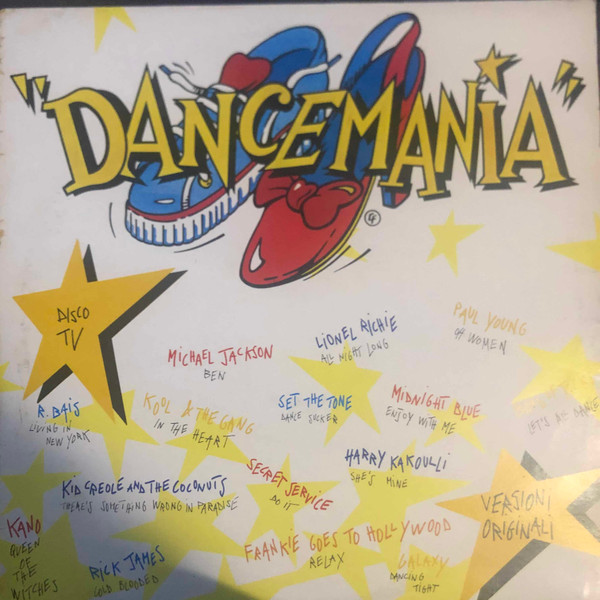 "DANCEMANIA"
DISCO
TV
PAUL YOUNG
OH WOMEN
LIONEL RICHIE
ALL NIGHT LONG
MICHAEL JACKSON
BEN
R. BAIS
LIVING IN
NEW YORK
KOOL & THE GANG
IN THE HEART
SET THE TONE
DANCE SUCKER
MIDNIGHT BLUE
ENJOY WITH ME
LET'S ALL DANCE
KID CREOLE AND THE COCONUTS
THERE'S SOMETHING WRONG IN PARADISE
SECRET SERVICE
DO IT
HARRY KAKOULLI
SHE'S MINE
VERSIONI
ORIGINALI
KANO
QUEEN
OF
THE
WITCHES
RICK JAMES
COLD BLOODED
FRANKIE GOES TO HOLLYWOOD
RELAX
GALAXY
DANCING
TIGHT